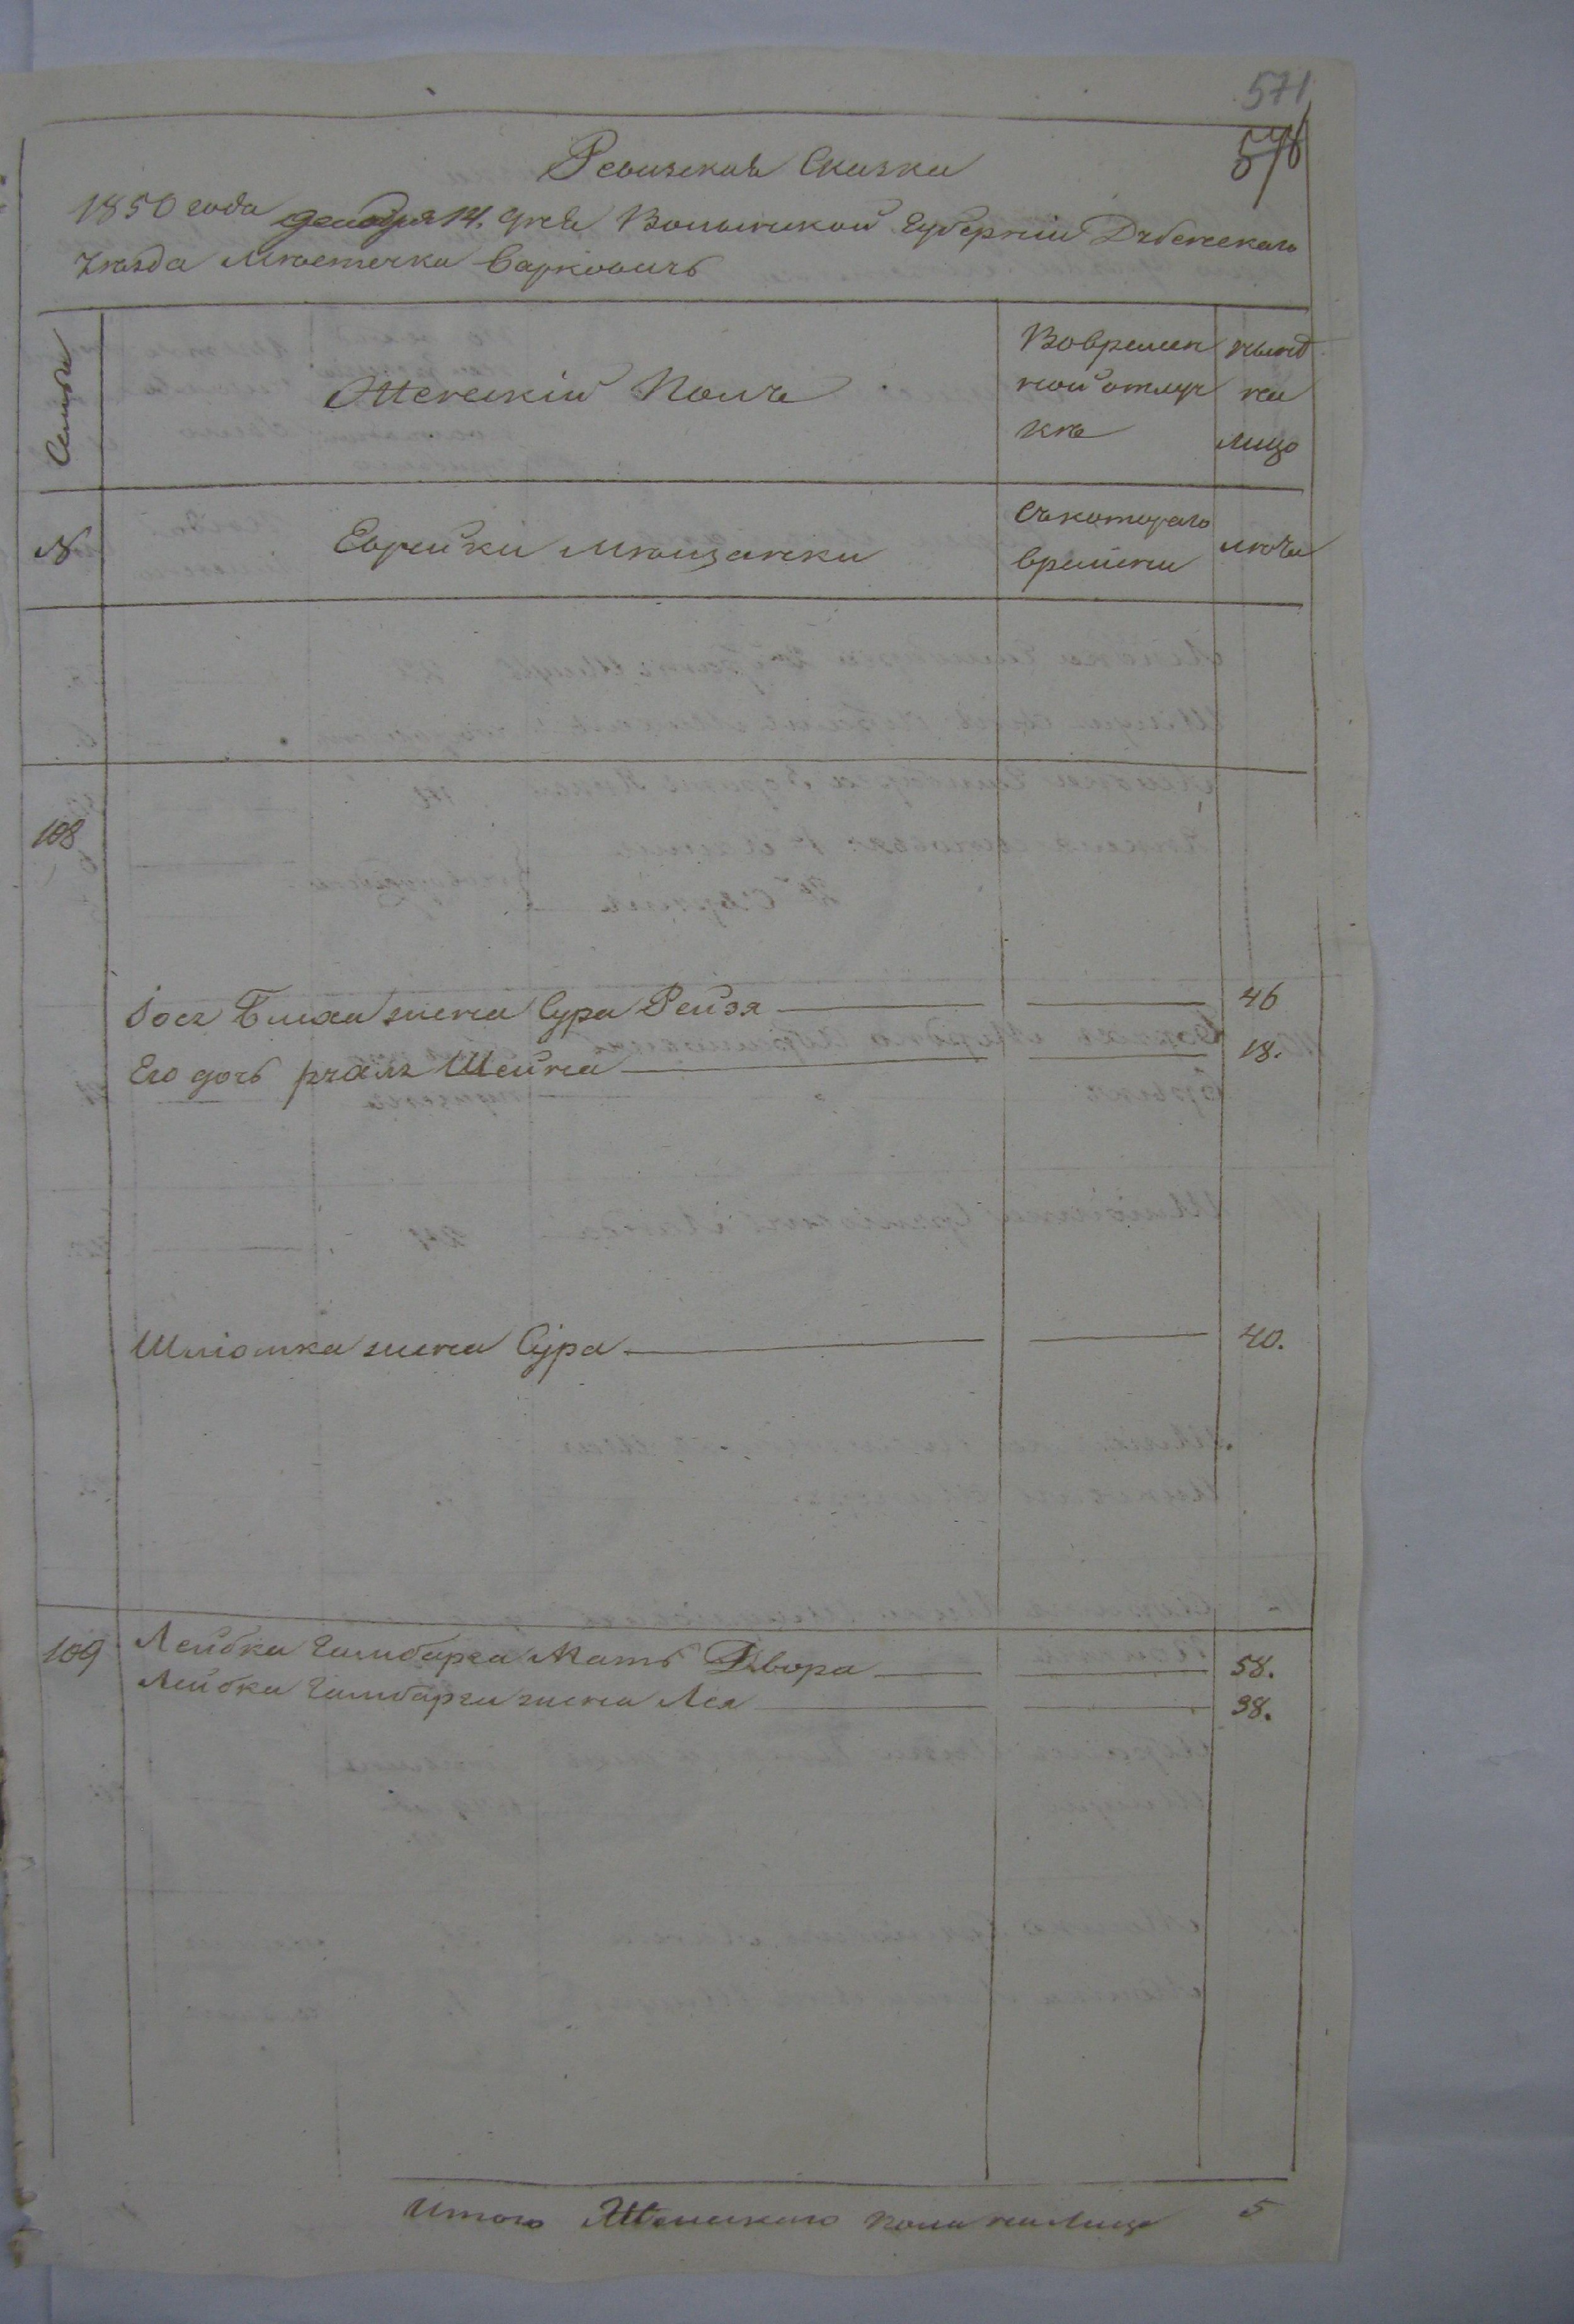 571
578
Ревизская Сказка
1850 года декабря 14. дня Волынской Губернии Дубенскаго
уезда Местечка Варковичь
Семьи
Женский Полъ
Во времен
ной отлуч
ке
ныне
на
лицо
№
Еврейки мещанки
Съ котораго
времени
лета
108
жена Сура Рейзя
46
Его дочь Шейна
18.
Шліомка жена Сура
40.
109
Лейбка Гамбарга Мать Двора
58.
Лейбка Гамбарга жена Лея
38.
Итого Женскаго пола на Лицо
5